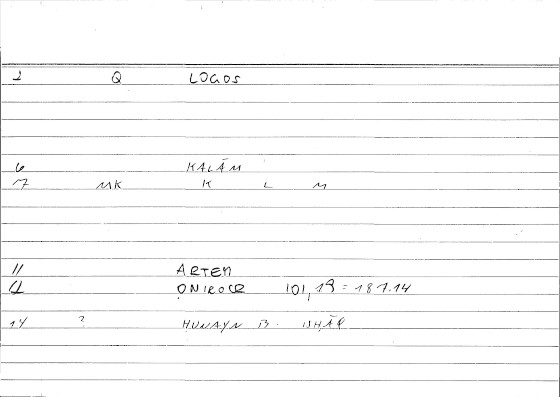 2 Q LOGOS
6 KALĀM
7 MK K L M
11 ARTEM
ONIROCR 101,19 = 181.14
14 ? HUNAYN B. ISHĀQ